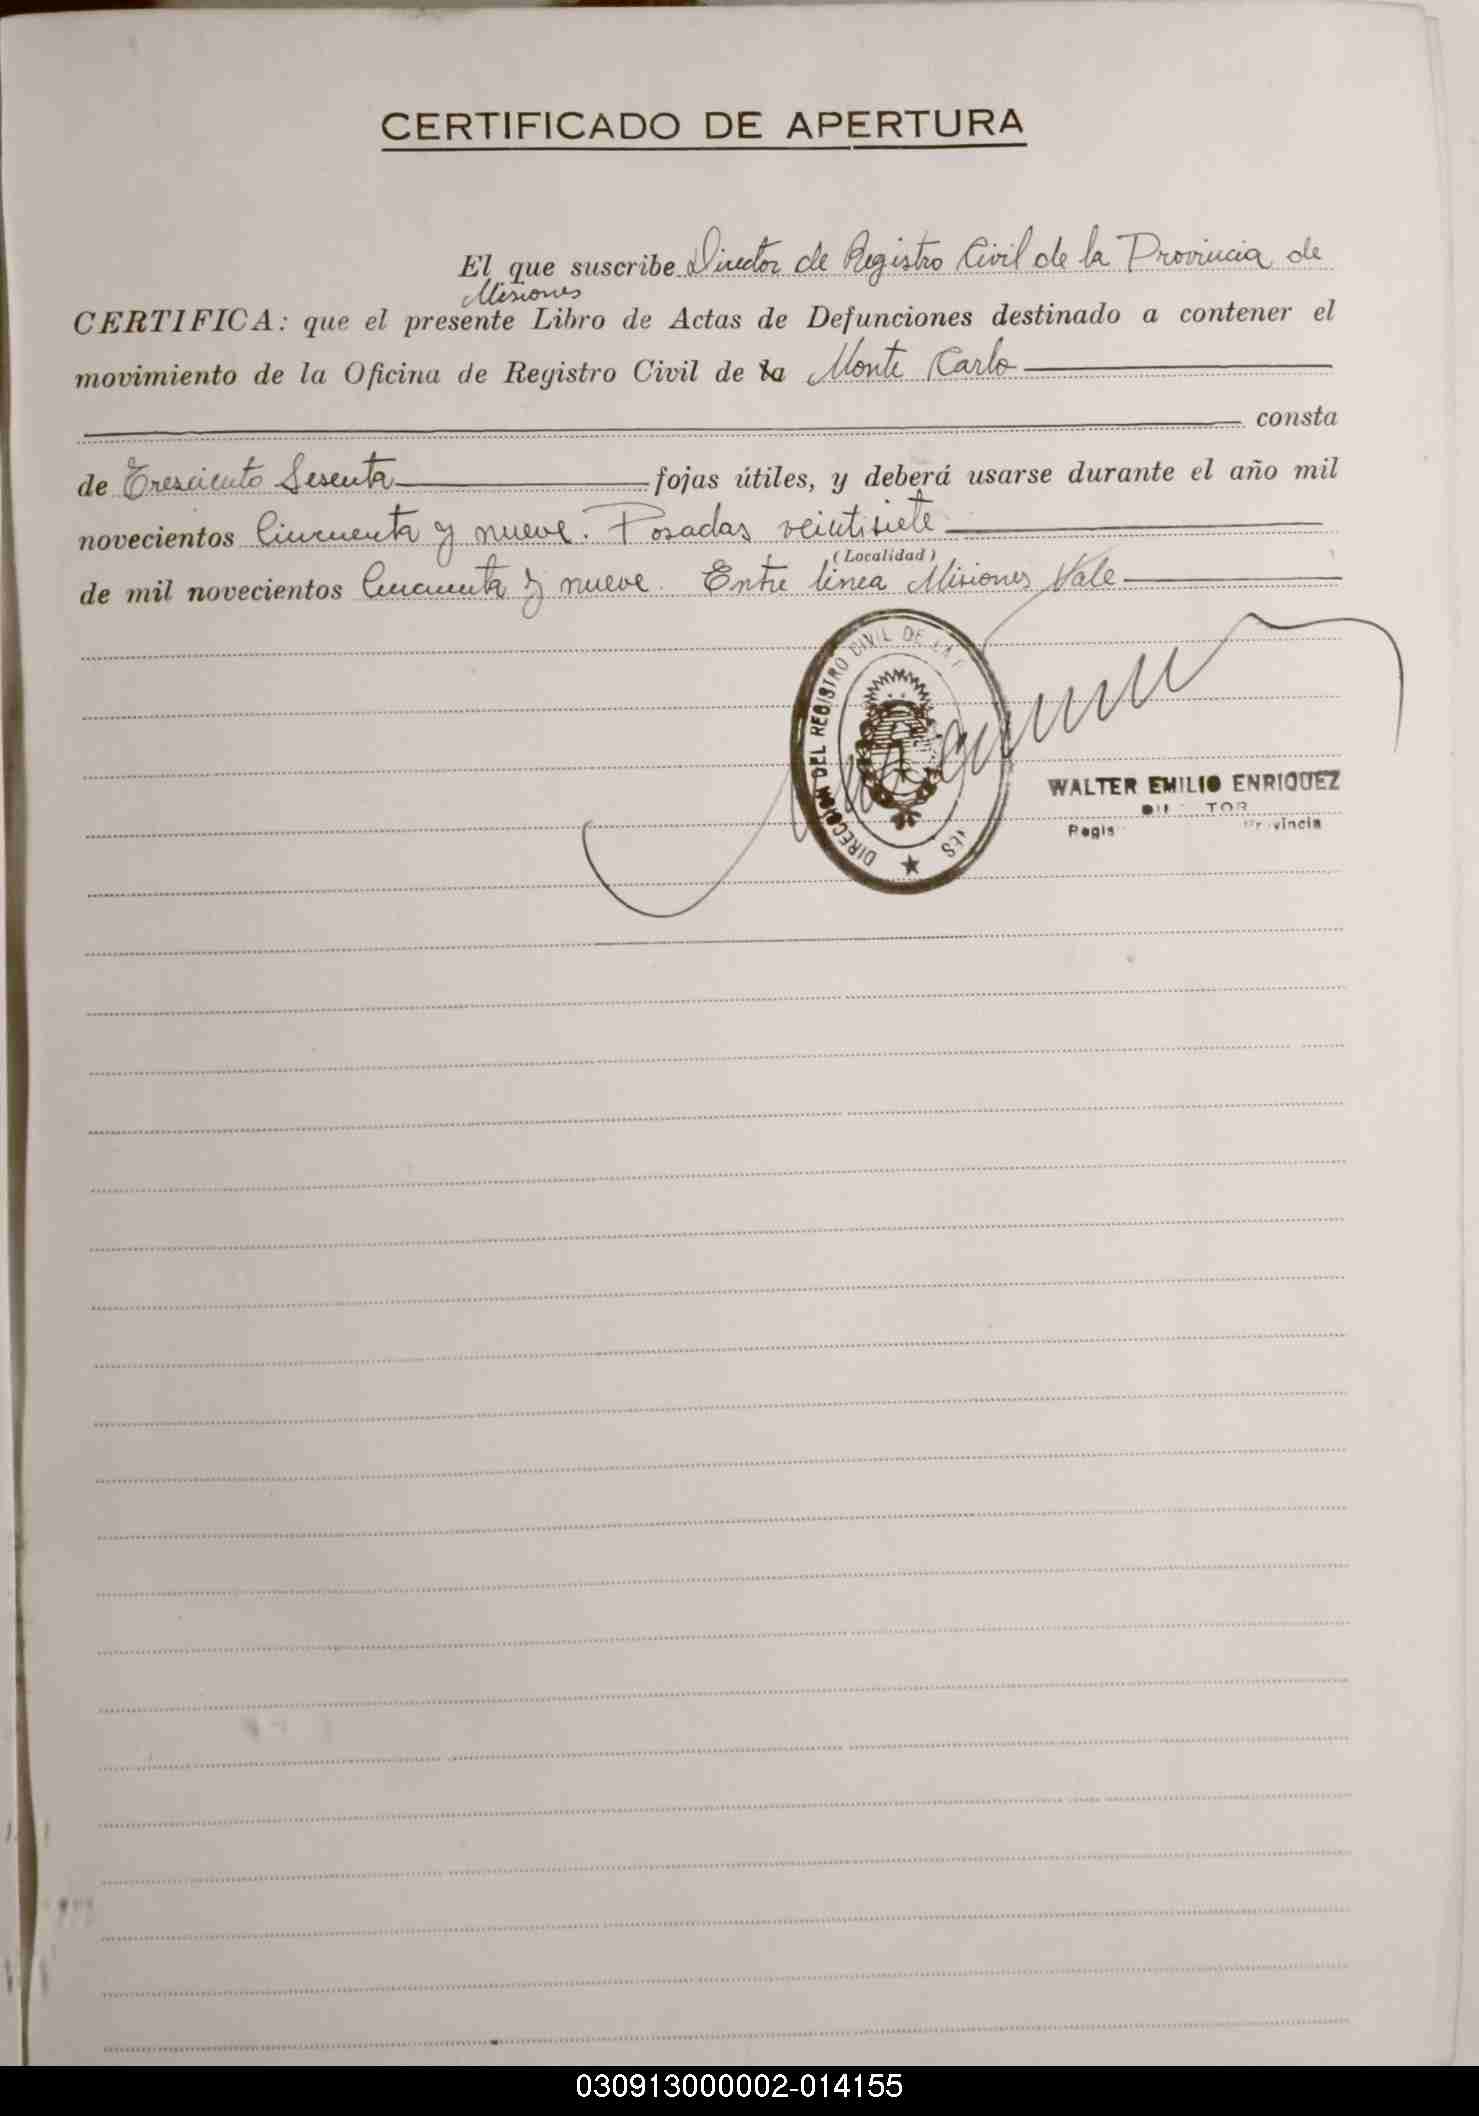 CERTIFICADO DE APERTURA
El que suscribe Director de Registro Civil de la Provincia de
Misiones
CERTIFICA: que el presente Libro de Actas de Defunciones destinado a contener el
movimiento de la Oficina de Registro Civil de la Monte Carlo
consta
de Tresciento Sesenta fojas útiles, y deberá usarse durante el año mil
novecientos Cincuenta y nueve. Posadas veintisiete
(Localidad)
de mil novecientos Cincuenta y nueve. Entre linea Misiones Vale
DIRECCIÓN DEL REGISTRO CIVIL DE
WALTER EMILIO ENRIQUEZ
030913000002-014155